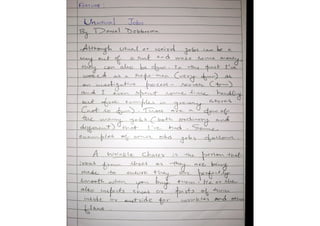 Unusual Jobs
By Daniel Dobberman
Although usual or weird jobs can be a
way out of a rut and make some money
they can also be fun. In the past I've
worked as a rope man (very fun) as
an investigative person - (fun)
and I even spent some time handing
out free samples in grocery stores
(not so fun). These are a few of
the many jobs (both ordinary and
different) that I've had. Some
examples of some odd jobs
A wrinkle chaser is the person that
irons shoes as they are being
made to ensure they are perfectly
smooth when you buy them. He or she
also inspects shoes or parts of shoes
inside or outside for wrinkles and other
flaws